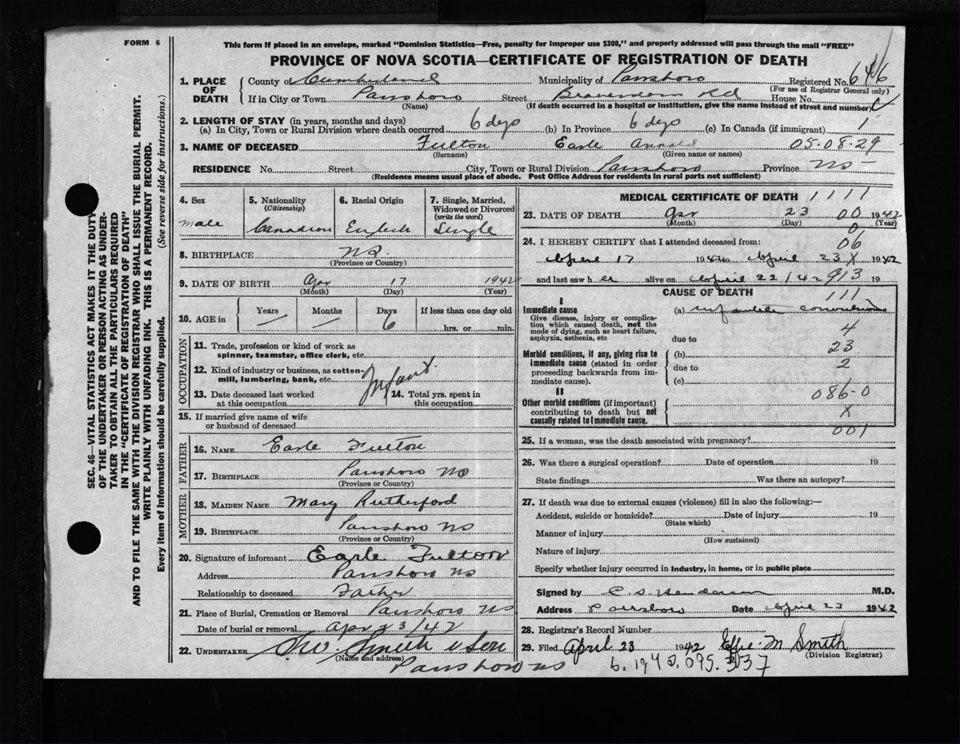 FORM 6
This form if placed in an envelope, marked "Dominion Statistics—Free, penalty for improper use $300," and properly addressed will pass through the mail "FREE"
PROVINCE OF NOVA SCOTIA—CERTIFICATE OF REGISTRATION OF DEATH
1. PLACE OF DEATH County of Cumberland Municipality of Parrsboro Registered No. 646
(For use of Registrar General only)
If in City or Town Parrsboro Street House No.
(Name) (If death occurred in a hospital or institution, give the name instead of street and number)
2. LENGTH OF STAY (in years, months and days)
(a) In City, Town or Rural Division where death occurred 6 days (b) In Province 6 days (c) In Canada (if immigrant) 1
3. NAME OF DECEASED Fulton Earle Arnold 05-08-29
(Surname) (Given name or names)
RESIDENCE No. Street City, Town or Rural Division Parrsboro Province NS
(Residence means usual place of abode. Post Office Address for residents in rural parts not sufficient)
4. Sex male
5. Nationality (Citizenship) Canadian
6. Racial Origin English
7. Single, Married, Widowed or Divorced (write the word) Single
8. BIRTHPLACE NS
(Province or Country)
9. DATE OF BIRTH Apr 17 1942
(Month) (Day) (Year)
10. AGE in Years — Months — Days 6 If less than one day old
hrs. or min.
OCCUPATION
11. Trade, profession or kind of work as spinner, teamster, office clerk, etc.
12. Kind of industry or business, as cotton-mill, lumbering, bank, etc. Infant
13. Date deceased last worked at this occupation 14. Total yrs. spent in this occupation
15. If married give name of wife or husband of deceased
FATHER
16. NAME Earle Fulton
17. BIRTHPLACE Parrsboro NS
(Province or Country)
MOTHER
18. MAIDEN NAME Mary Rutherford
19. BIRTHPLACE Parrsboro NS
(Province or Country)
20. Signature of informant Earle Fulton
Address Parrsboro NS
Relationship to deceased Father
21. Place of Burial, Cremation or Removal Parrsboro NS
Date of burial or removal Apr 23/42
22. UNDERTAKER Smith & Son
(Name and address)
Parrsboro NS
MEDICAL CERTIFICATE OF DEATH 1111
23. DATE OF DEATH Apr 23 00 1942
(Month) (Day) (Year)
0
24. I HEREBY CERTIFY that I attended deceased from: 06
April 17 1942 to April 23 X 1942
and last saw h er alive on April 22/42 913 19
CAUSE OF DEATH
111
I
Immediate cause (a) infantile convulsions
Give disease, injury or complication which caused death, not the mode of dying, such as heart failure, asphyxia, asthenia, etc
4
due to
23
Morbid conditions, if any, giving rise to immediate cause (stated in order proceeding backwards from immediate cause). (b)
2
due to
(c)
II
086-0
Other morbid conditions (if important) contributing to death but not causally related to immediate cause.
X
001
25. If a woman, was the death associated with pregnancy?
26. Was there a surgical operation? Date of operation 19
State findings Was there an autopsy?
27. If death was due to external causes (violence) fill in also the following:—
Accident, suicide or homicide? Date of injury 19
(State which)
Manner of injury
(How sustained)
Nature of injury
Specify whether injury occurred in industry, in home, or in public place
Signed by C. S. Henderson M.D.
Address Parrsboro Date April 23 1942
28. Registrar's Record Number
29. Filed April 23 1942 Effie M Smith
(Division Registrar)
SEC. 46—VITAL STATISTICS ACT MAKES IT THE DUTY OF THE UNDERTAKER OR PERSON ACTING AS UNDERTAKER TO OBTAIN ALL THE PARTICULARS REQUIRED IN THE "CERTIFICATE OF REGISTRATION OF DEATH" AND TO FILE THE SAME WITH THE DIVISION REGISTRAR WHO SHALL ISSUE THE BURIAL PERMIT.
WRITE PLAINLY WITH UNFADING INK. THIS IS A PERMANENT RECORD.
Every item of information should be carefully supplied. (See reverse side for instructions.)